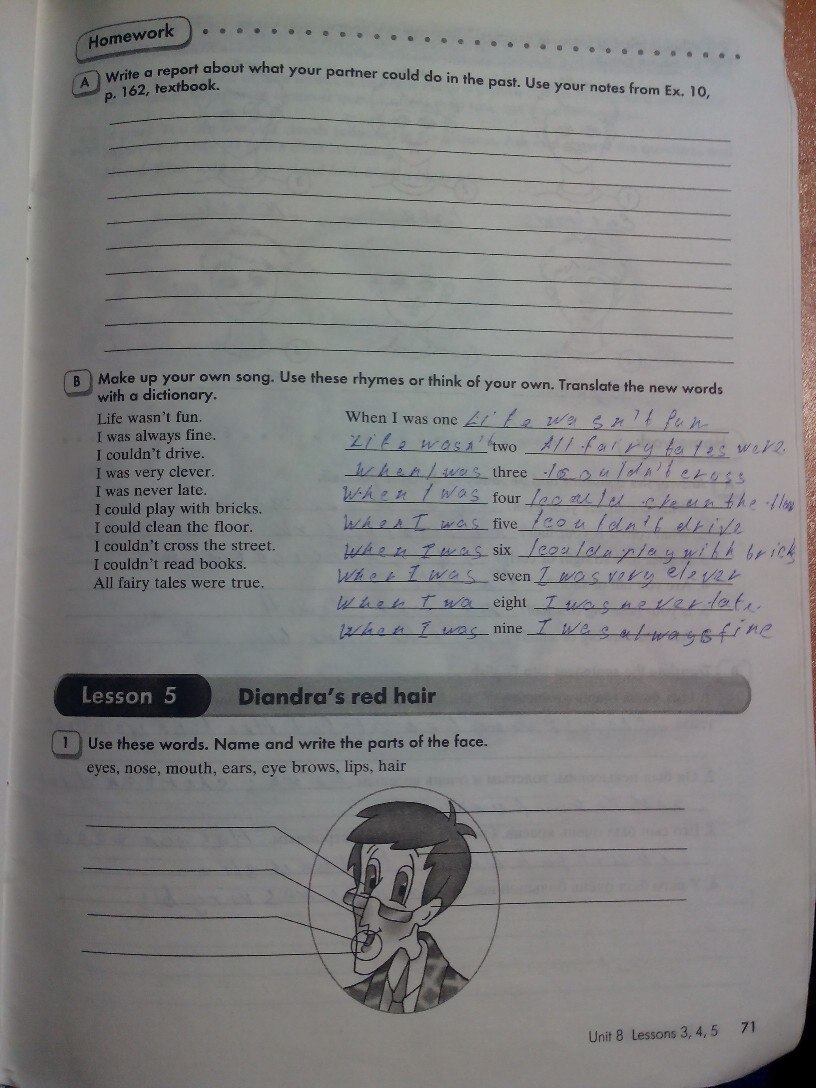 Homework
A Write a report about what your partner could do in the past. Use your notes from Ex. 10,
p. 162, textbook.
B Make up your own song. Use these rhymes or think of your own. Translate the new words
with a dictionary.
Life wasn't fun.
I was always fine.
I couldn't drive.
I was very clever.
I was never late.
I could play with bricks.
I could clean the floor.
I couldn't cross the street.
I couldn't read books.
All fairy tales were true.
When I was one Life wasn't fun
Life wasn't two All fairy tales were
When I was three Icouldn't cross
When I was four I could clean the floo
When I was five I couldn't drive
When I was six I could play with brick
When I was seven I was very clever
When I wa eight I was never late
When I was nine I was always fine
Lesson 5 Diandra's red hair
1 Use these words. Name and write the parts of the face.
eyes, nose, mouth, ears, eye brows, lips, hair
Unit 8 Lessons 3, 4, 5 71